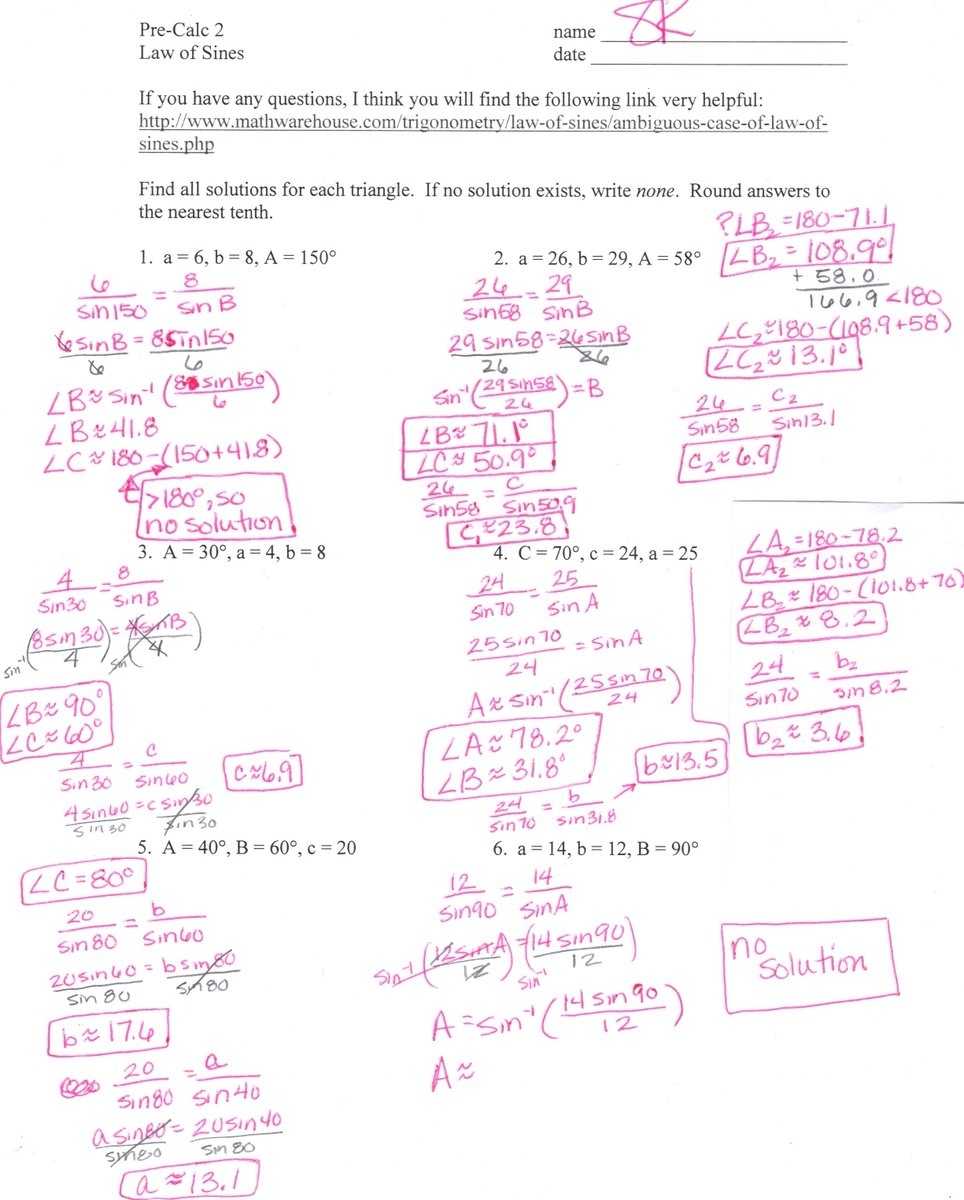 Pre-Calc 2
Law of Sines
name SK
date
If you have any questions, I think you will find the following link very helpful:
http://www.mathwarehouse.com/trigonometry/law-of-sines/ambiguous-case-of-law-of-
sines.php
Find all solutions for each triangle. If no solution exists, write none. Round answers to
the nearest tenth.
1. a = 6, b = 8, A = 150°
6/sin150 = 8/sin B
6sinB/6 = 8sin150/6
∠B≈sin⁻¹(8 sin150/6)
∠B≈41.8
∠C≈180-(150+41.8)
>180°, so
no solution
2. a = 26, b = 29, A = 58°
26/sin58 = 29/sinB
29 sin58/26 = 26sinB/26
sin⁻¹(29 sin58/26) = B
∠B≈71.1°
∠C≈50.9°
26/sin58 = C/sin50.9
C₁≈23.8
?∠B₂=180-71.1
∠B₂=108.9°
+ 58.0
166.9<180
∠C₂≈180-(108.9+58)
∠C₂≈13.1°
26/sin58 = C₂/sin13.1
C₂≈6.9
3. A = 30°, a = 4, b = 8
4/sin30 = 8/sinB
sin⁻¹(8sin30/4) = sin⁻¹(4sinB/4)
∠B≈90°
∠C≈60°
4/sin30 = c/sin60
c≈6.9
4sin60/sin30 = c sin30/sin30
4. C = 70°, c = 24, a = 25
24/sin70 = 25/sin A
25sin70/24 = sinA
A≈sin⁻¹(25sin70/24)
∠A≈78.2°
∠B≈31.8°
24/sin70 = b/sin31.8
b≈13.5
∠A₂=180-78.2
∠A₂≈101.8°
∠B₂≈180-(101.8+70)
∠B₂≈8.2
24/sin70 = b₂/sin8.2
b₂≈3.6
5. A = 40°, B = 60°, c = 20
∠C=80°
20/sin80 = b/sin60
20sin60/sin80 = bsin80/sin80
b≈17.6
20/sin80 = a/sin40
asin80/sin80 = 20sin40/sin80
a≈13.1
6. a = 14, b = 12, B = 90°
12/sin90 = 14/sinA
sin⁻¹(12sinA/12) = sin⁻¹(14sin90/12)
A=sin⁻¹(14sin90/12)
A≈
no
solution